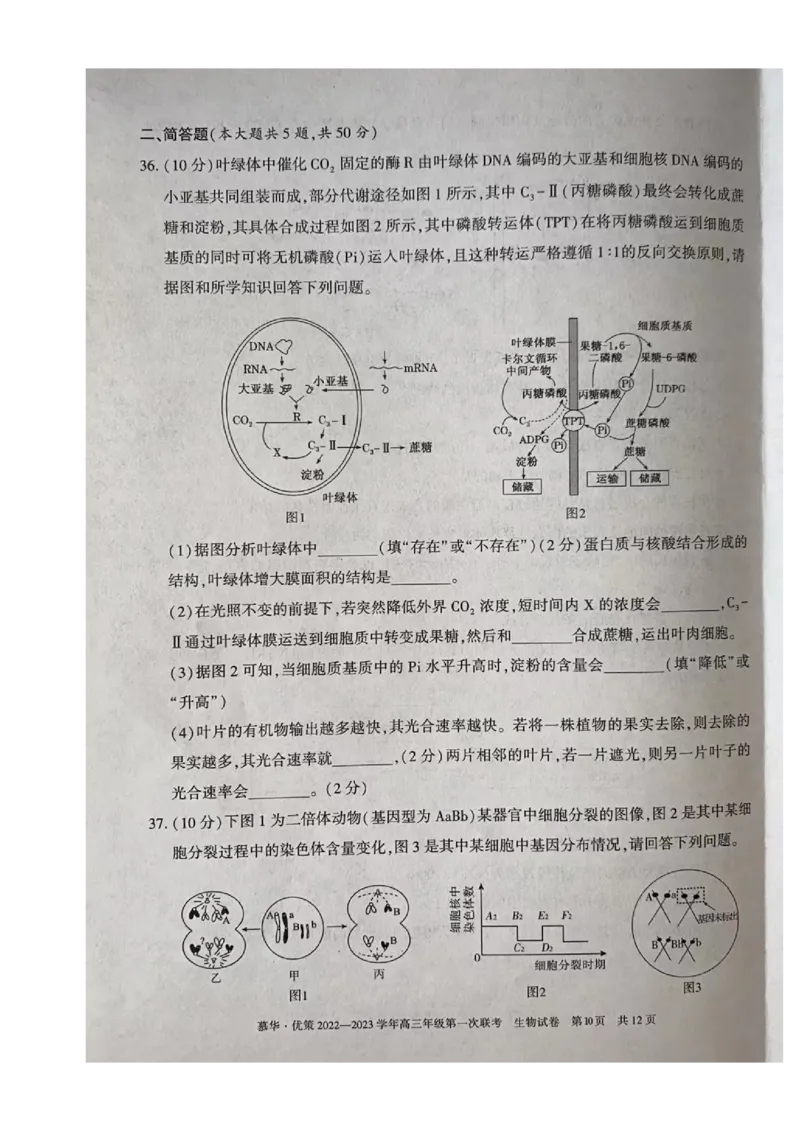 二、简答题(本大题共5题,共50分)
36.(10分)叶绿体中催化CO₂固定的酶R由叶绿体DNA编码的大亚基和细胞核DNA编码的
小亚基共同组装而成,部分代谢途径如图1所示,其中C₃-Ⅱ(丙糖磷酸)最终会转化成蔗
糖和淀粉,其具体合成过程如图2所示,其中磷酸转运体(TPT)在将丙糖磷酸运到细胞质
基质的同时可将无机磷酸(Pi)运入叶绿体,且这种转运严格遵循1:1的反向交换原则,请
据图和所学知识回答下列问题。
DNA
RNA
大亚基
小亚基
mRNA
CO₂
R
C₃-Ⅰ
X
C₃-Ⅱ
C₃-Ⅱ
蔗糖
淀粉
叶绿体
图1
细胞质基质
叶绿体膜
卡尔文循环
中间产物
果糖-1,6-
二磷酸
果糖-6-磷酸
丙糖磷酸
丙糖磷酸
Pi
UDPG
CO₂
TPT
Pi
蔗糖磷酸
ADPG
Pi
淀粉
蔗糖
储藏
运输
储藏
图2
(1)据图分析叶绿体中________(填“存在”或“不存在”)(2分)蛋白质与核酸结合形成的
结构,叶绿体增大膜面积的结构是________。
(2)在光照不变的前提下,若突然降低外界CO₂浓度,短时间内X的浓度会________,C₃-
Ⅱ通过叶绿体膜运送到细胞质中转变成果糖,然后和________合成蔗糖,运出叶肉细胞。
(3)据图2可知,当细胞质基质中的Pi水平升高时,淀粉的含量会________(填“降低”或
“升高”)
(4)叶片的有机物输出越多越快,其光合速率越快。若将一株植物的果实去除,则去除的
果实越多,其光合速率就________,(2分)两片相邻的叶片,若一片遮光,则另一片叶子的
光合速率会________。(2分)
37.(10分)下图1为二倍体动物(基因型为AaBb)某器官中细胞分裂的图像,图2是其中某细
胞分裂过程中的染色体含量变化,图3是其中某细胞中基因分布情况,请回答下列问题。
A
?
乙
A
a
B
b
甲
A
B
B
丙
图1
细胞核中
染色体数
A₂ B₂ E₂ F₂
C₂ D₂
0
细胞分裂时期
图2
A
a
基因未标出
B
B
b
b
图3
慕华·优策2022—2023学年高三年级第一次联考 生物试卷 第10页 共12页